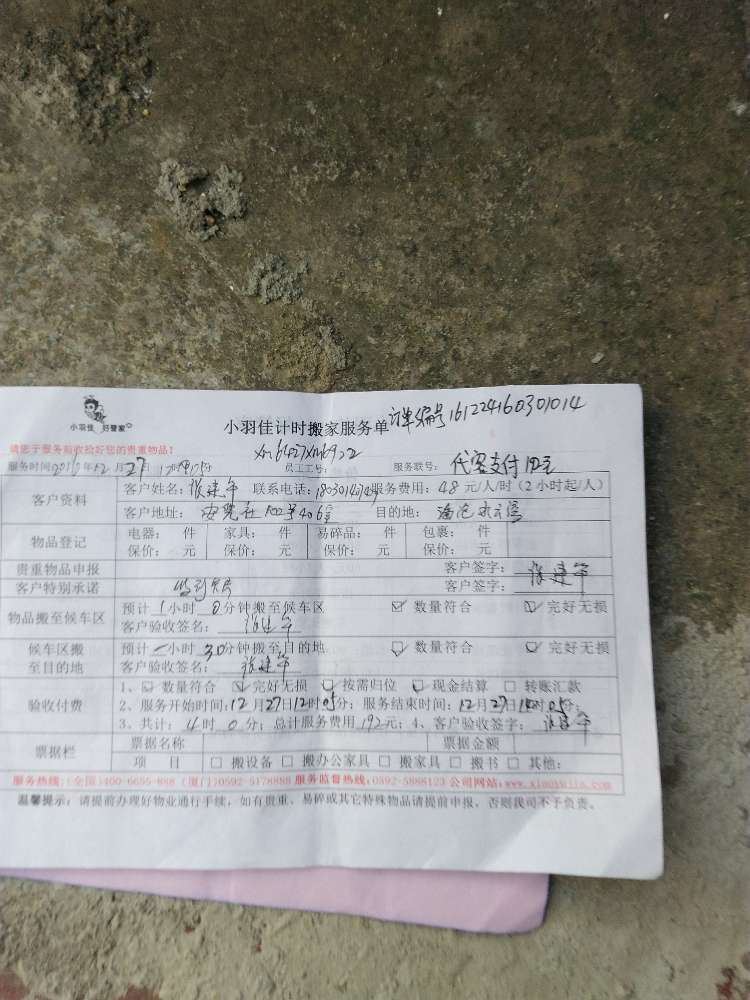 小羽佳 好管家
小羽佳计时搬家服务单 订单编号 161224160301014
请您于服务前收捡好您的贵重物品!
服务时间2016年12月27日 员工工号: 服务联号: 代客支付
客户资料 客户姓名: 张建华 联系电话: 服务费用: 48元/人/时(2小时起/人)
客户地址: 社102号406室 目的地: 海沧
物品登记 电器: 件 家具: 件 易碎品: 件 包裹: 件
保价: 元 保价: 元 保价: 元 保价: 元
贵重物品申报 客户签字: 张建华
客户特别承诺 客户签字:
物品搬至候车区 预计1小时0分钟搬至候车区 ☑ 数量符合 ☑ 完好无损
客户验收签名: 张建华
候车区搬至目的地 预计一小时30分钟搬至目的地 ☑ 数量符合 ☑ 完好无损
客户验收签名: 张建华
验收付费 1、☑ 数量符合 ☑ 完好无损 ☑ 按需归位 ☑ 现金结算 □ 转账汇款
2、服务开始时间: 12月27日12时05分; 服务结束时间: 12月27日16时05分;
3、共计: 4时0分; 总计服务费用192元; 4、客户验收签字: 张建华
票据栏 票据名称 票据金额
项 目 □ 搬设备 □ 搬办公家具 □ 搬家具 □ 搬书 □ 其他:
服务热线:(全国)400-6655-888 (厦门)0592-5178888 服务监督热线:0592-5888123 公司网站:www.xiaoyujia.com
温馨提示: 请提前办理好物业通行手续, 如有贵重、易碎或其它特殊物品请提前申报, 否则我司不予负责。